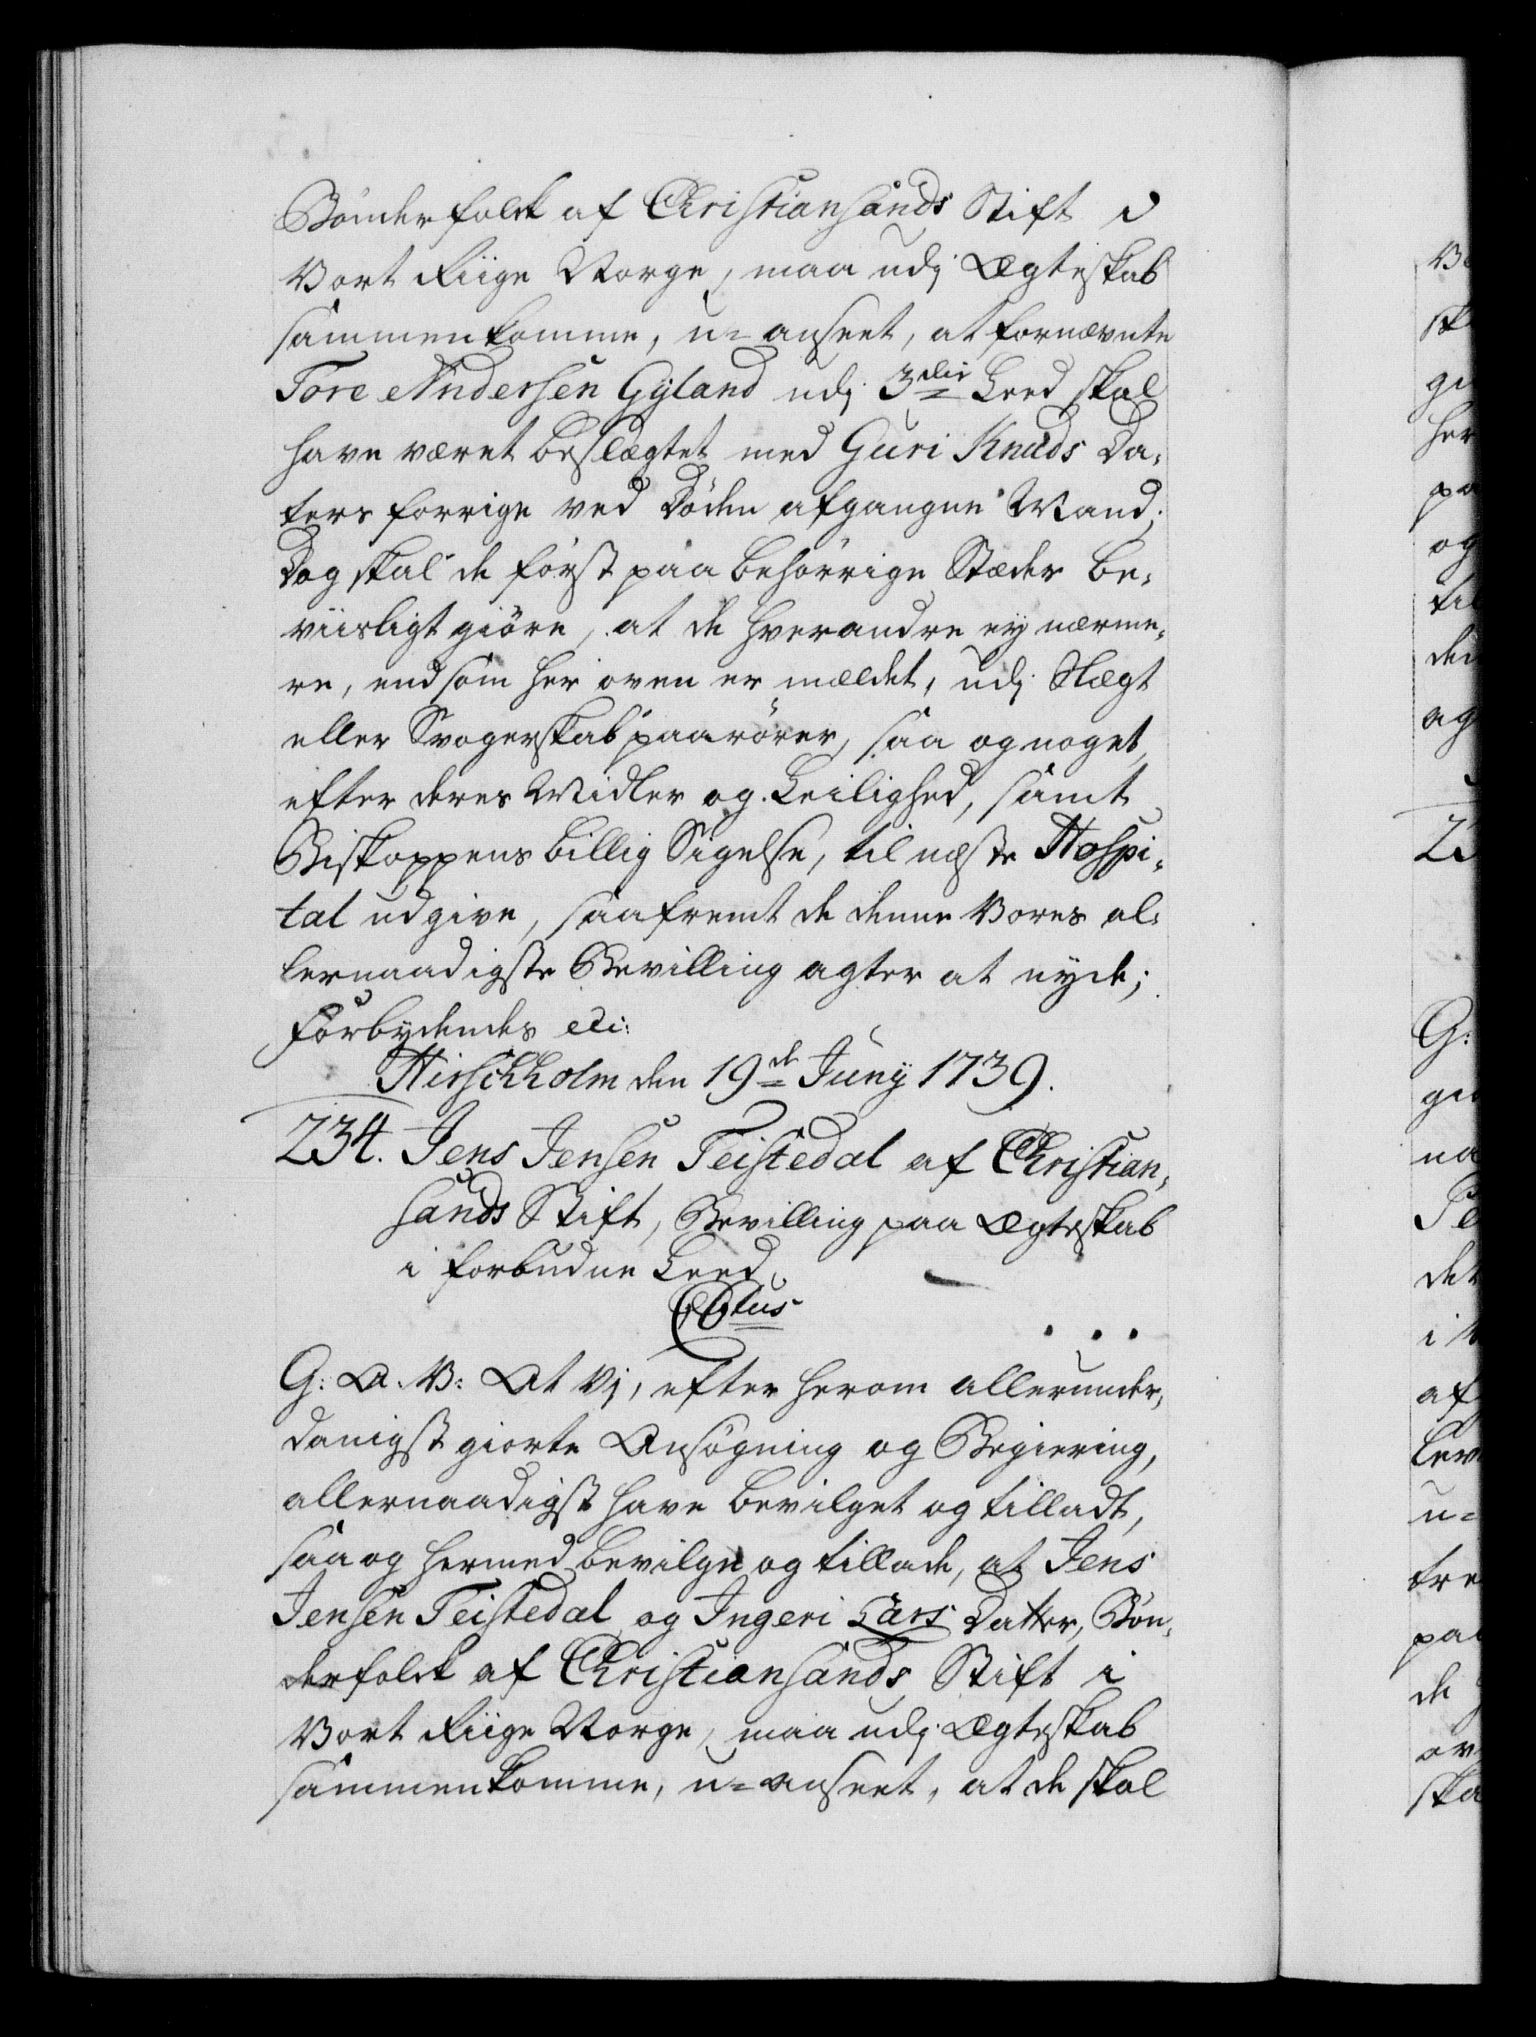 Bönderfolck af Christiansands Stift i
Vort Riige Norge, maa udj Ægteskab
sammenkomme, u-anseet, at fornævnte
Tore Andersen Gyland udj 3die Leed skal
have været beslægtet med Guri Knuds Da-
ters forrige ved Döden afgangne Mand;
Dog skal de först paa behörrige Stæder be-
viisligt giöre, at de hverandre ey nærme-
re, end som her oven er mældet, udj Slægt
eller Svogerskab paarörer, saa og noget,
efter deres Midler og Leilighed, samt
Biskoppens billig Sigelse, til næste Hospi-
tal udgive, saafremt de denne Vores al-
lernaadigste Bevilling agter at nyde;
Forbydendes etc:
Hirschholm den 19de Junij 1739.
234. Jens Jensen Teistedal af Christian-
sands Stift, Bevilling paa Ægteskab
i forbudne Leed.
C6tus
G: A. V: At Vj, efter herom allerunder-
danigst giorte Ansögning og Begiering,
allernaadigst have bevilget og tilladt,
saa og hermed bevilge og tillade, at Jens
Jensen Teistedal og Ingeri Lars Datter, Bön-
derfolck af Christiansands Stift i
Vort Riige Norge, maa udj Ægteskab
sammenkomme, u-anseet, at de skal